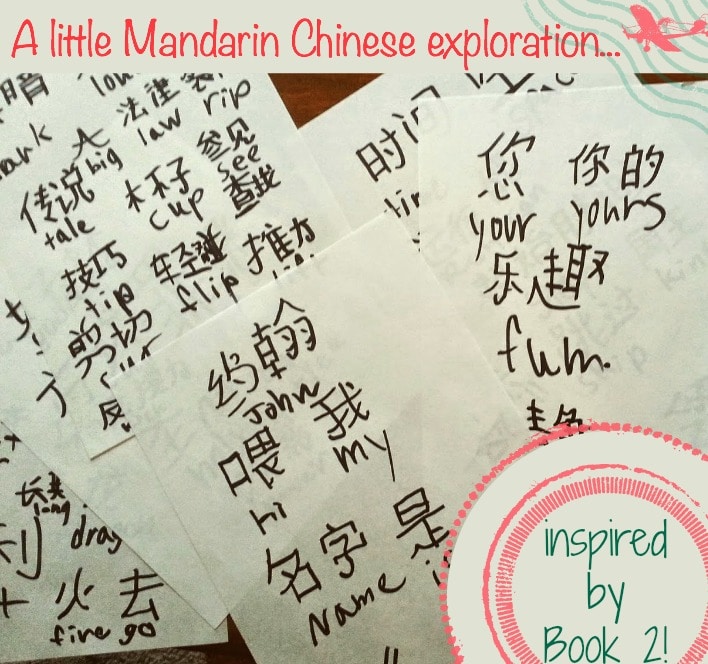 A little Mandarin Chinese exploration...
法律
law rip
大
big
参见
see
传说
tale
木杯子
cup
查找
技巧
tip
轻碰
flip
剪切
时间
您 你的
your yours
乐趣
fum.
约翰
John
喂 我
hi my
名字 是
Name
long
drag
火 去
fire go
inspired
by
Book 2!